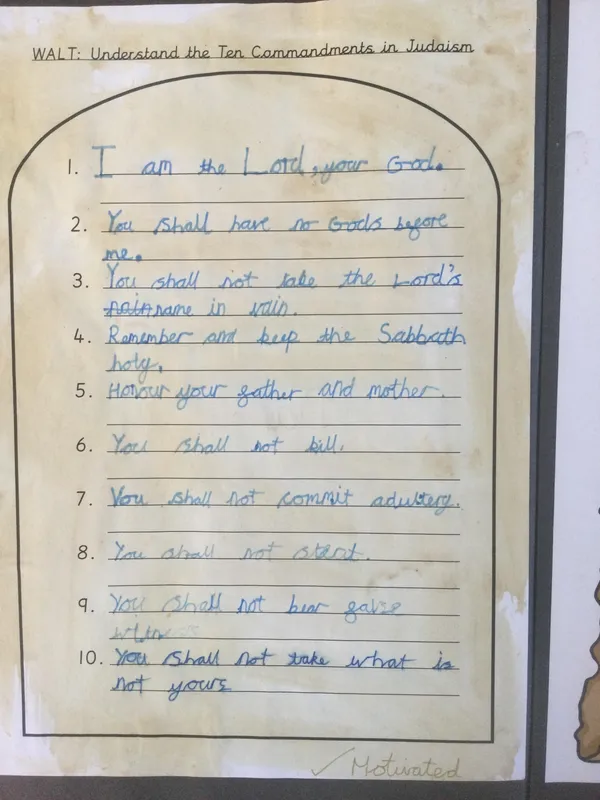 WALT: Understand the Ten Commandments in Judaism
1. I am the Lord, your God.
2. You shall have no Gods before
me.
3. You shall not take the Lord's
name in vain.
4. Remember and keep the Sabbath
holy.
5. Honour your father and mother.
6. You shall not kill.
7. You shall not commit adultery.
8. You shall not
9. You shall not bear false
witness
10. You shall not take what is
not yours
✓ Motivated